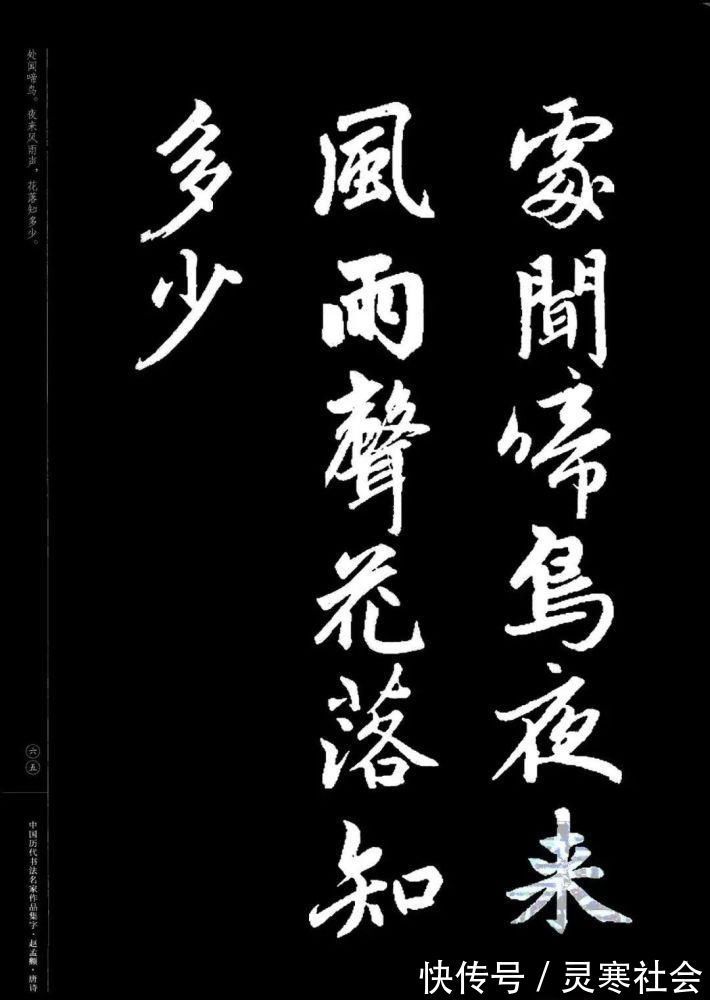 處聞啼鳥夜来
風雨聲花落知
多少
处闻啼鸟。夜来风雨声，花落知多少。
六五
中国历代书法名家作品集字·赵孟頫·唐诗
快传号/灵寒社会